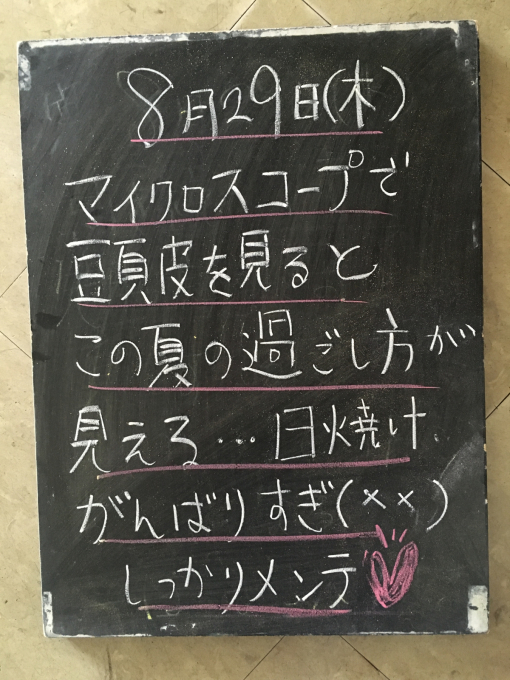 8月29日(木)
マイクロスコープで
頭皮を見ると
この夏の過ごし方が
見える…日焼け
がんばりすぎ(××)
しっかりメンテ